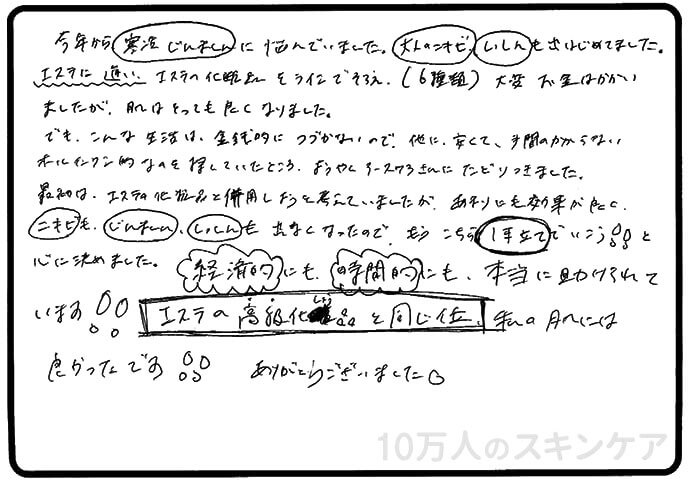 今年から寒冷じんましんに悩んでいました。大人のニキビ、しっしんも出はじめてました。
エステに通い、エステの化粧品をラインでそろえ、(6種類)大変お金はかかい
ましたが、肌はとっても良くなりました。
でも、こんな生活は、金銭的につづかないので、他に、安くて、手間のかからない
オールインワン的なのを探していたところ、ようやく
さんにたどりつきました。
最初は、エステの化粧品と併用しようと考えていましたが、あまりにも効果が良く、
ニキビも、じんましん、しっしんも出なくなったので、もうこちら1本立てでいこう!!と
心に決めました。経済的にも、時間的にも、本当に助けられて
います!! エステの高級化しょう品と同じ位、私の肌には
良かったです!! ありがとうございました。
10万人のスキンケア